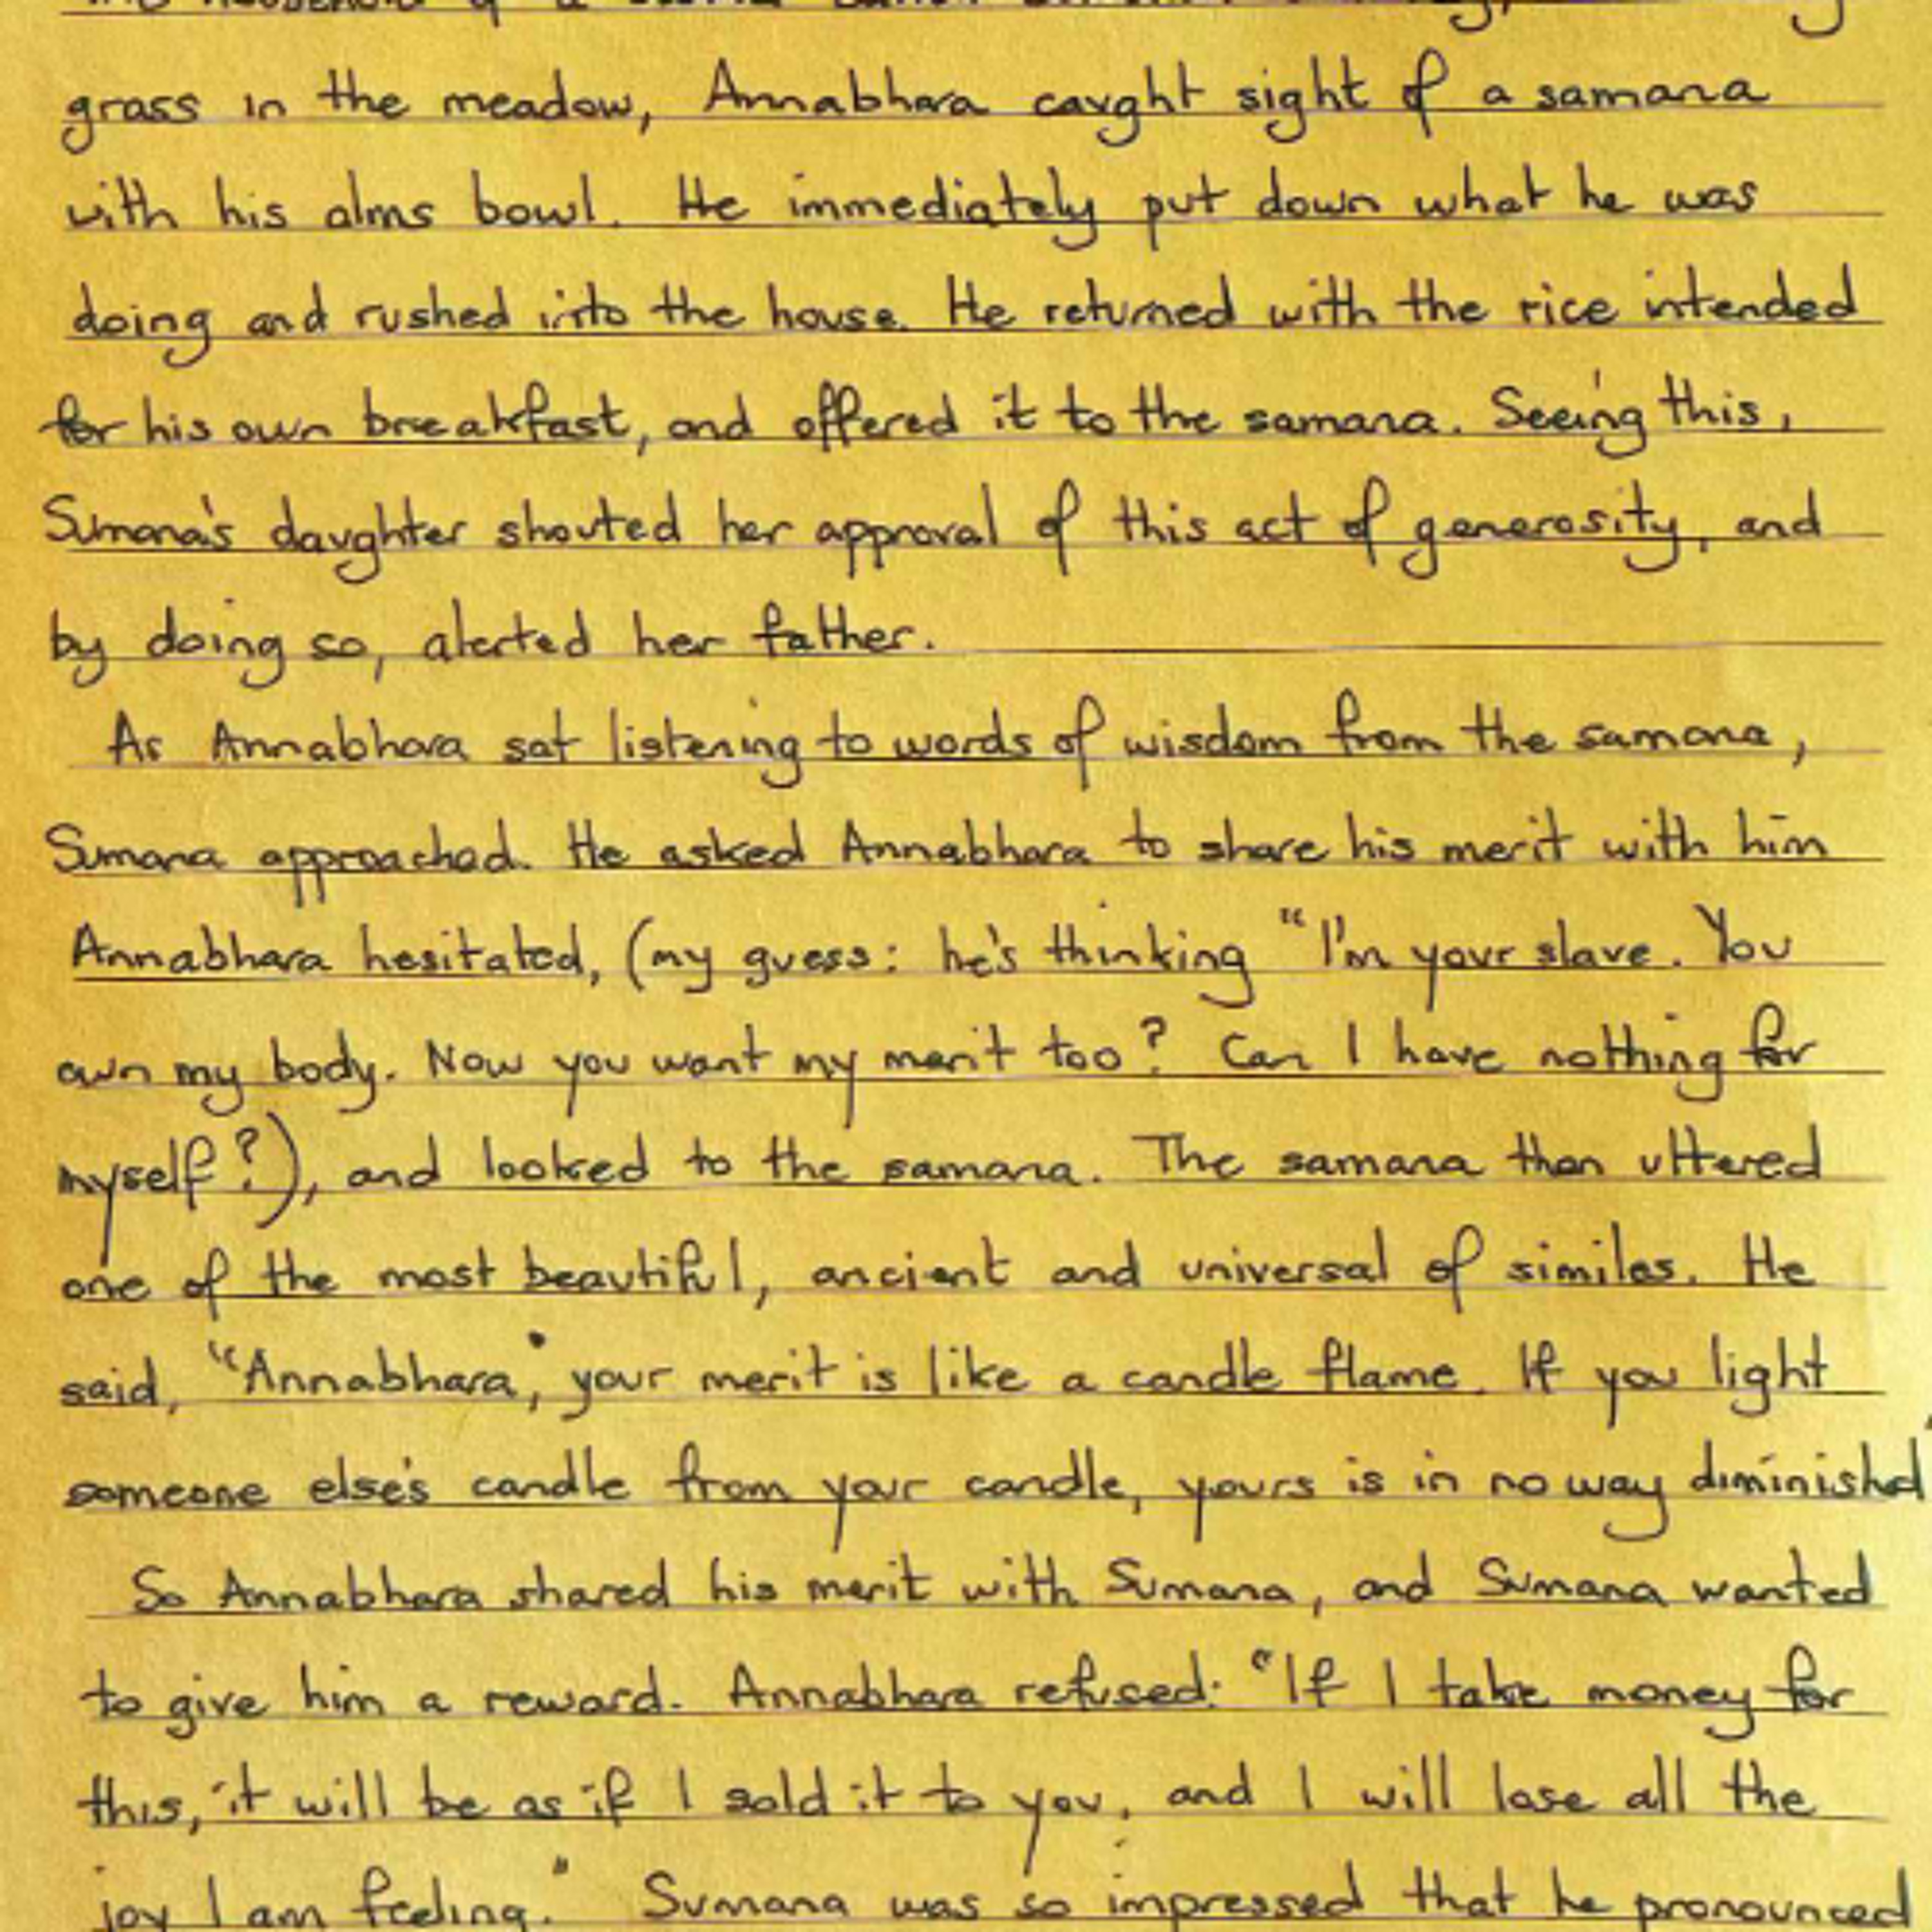 household of a
grass in the meadow, Annabhara caught sight of a samana
with his alms bowl. He immediately put down what he was
doing and rushed into the house. He returned with the rice intended
for his own breakfast, and offered it to the samana. Seeing this,
Sumana's daughter shouted her approval of this act of generosity, and
by doing so, alerted her father.
As Annabhara sat listening to words of wisdom from the samana,
Sumana approached. He asked Annabhara to share his merit with him
Annabhara hesitated, (my guess: he's thinking "I'm your slave. You
own my body. Now you want my merit too? Can I have nothing for
myself?), and looked to the samana. The samana then uttered
one of the most beautiful, ancient and universal of similes. He
said, "Annabhara, your merit is like a candle flame. If you light
someone else's candle from your candle, yours is in no way diminished
So Annabhara shared his merit with Sumana, and Sumana wanted
to give him a reward. Annabhara refused: "If I take money for
this, it will be as if I sold it to you, and I will lose all the
joy I am feeling." Sumana was so impressed that he pronounced